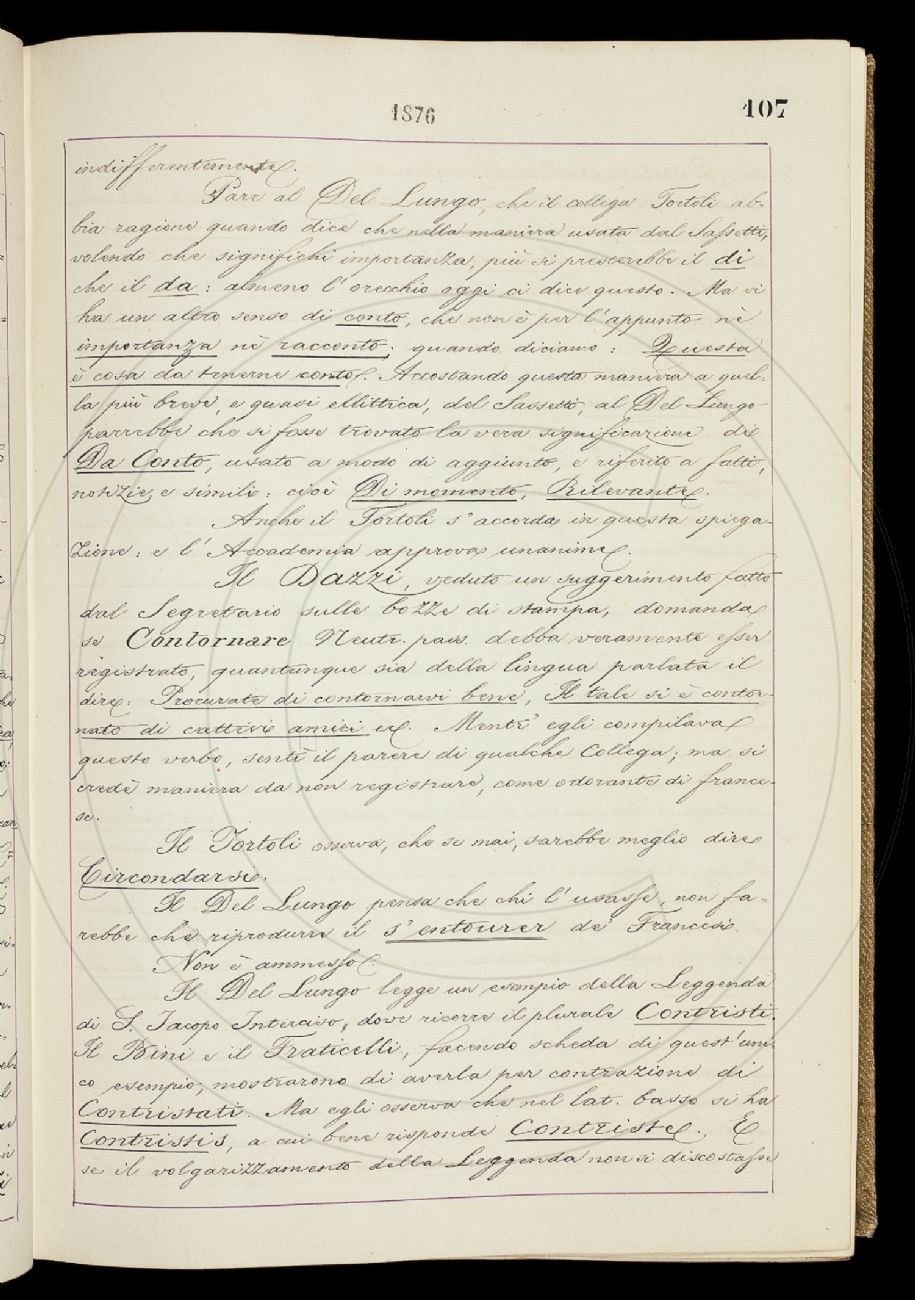 1876
107
indifferentemente.
Pare al Del Lungo, che il collega Tortoli ab-
bia ragione quando dice che nella maniera usata dal Sassetti,
volendo che significhi importanza, più si presterebbe il di
che il da: almeno l'orecchio oggi ci dice questo. Ma vi
ha un altro senso di conto, che non è per l'appunto nè
importanza nè racconto; quando diciamo: Questa
è cosa da tenerne conto. Accostando questa maniera a quel-
la più breve, e quasi ellittica, del Sassetti, al Del Lungo
parrebbe che si fosse trovato la vera significazione di
Da Conto, usato a modo di aggiunto, e riferito a fatti,
notizie, e simili: cioè Di momento, Rilevante.
Anche il Tortoli s'accorda in questa spiega-
zione: e l'Accademia approva unanime.
Il Dazzi, veduto un suggerimento fatto
dal Segretario sulle bozze di stampa, domanda
se Contornare Neutr. pass. debba veramente esser
registrato, quantunque sia della lingua parlata il
dire: Procurate di contornarvi bene, Il tale si è contor-
nato di cattivi amici ec. Mentr'egli compilava
questo verbo, sentì il parere di qualche Collega; ma si
credè maniera da non registrare, come odorante di france-
se.
Il Tortoli osserva, che se mai, sarebbe meglio dire
Circondarsi.
Il Del Lungo pensa che chi l'usasse, non fa-
rebbe che riprodurre il s'entourer de' Francesi.
Non è ammesso.
Il Del Lungo legge un esempio della Leggenda
di S. Jacopo Interciso, dove ricorre il plurale Contristi.
Il Bini e il Fraticelli, facendo scheda di quest'uni-
co esempio, mostrarono di averla per contrazione di
Contristati. Ma egli osserva che nel lat. basso si ha
Contristis, a cui bene risponde Contriste. E
se il volgarizzamento della Leggenda non si discostasse